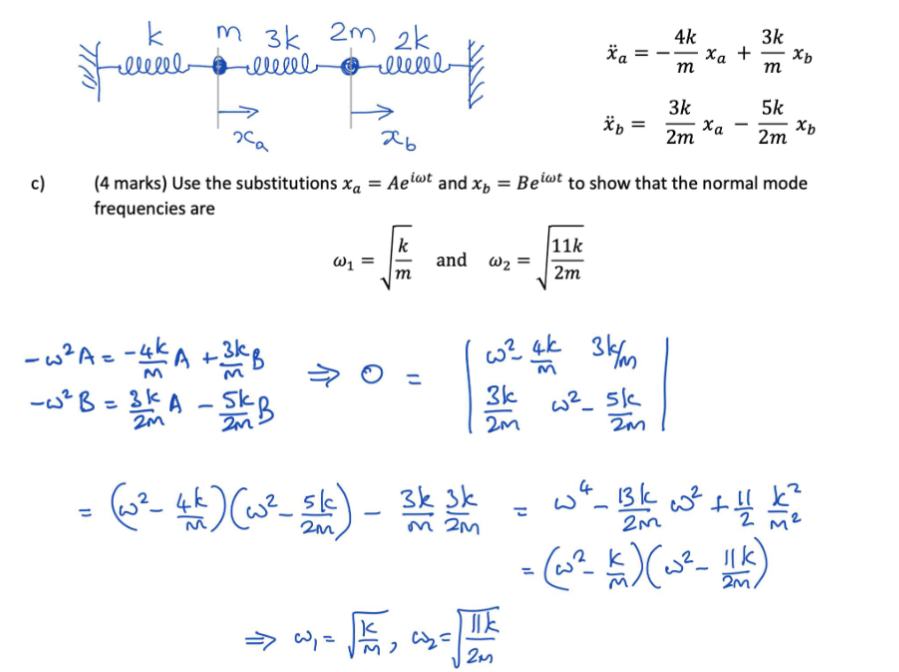 k m 3k 2m 2k
xₐ x_b
ẍₐ = − 4k/m xₐ + 3k/m x_b
ẍ_b = 3k/2m xₐ − 5k/2m x_b
c) (4 marks) Use the substitutions xₐ = Ae^{iωt} and x_b = Be^{iωt} to show that the normal mode
frequencies are
ω₁ = √(k/m) and ω₂ = √(11k/2m)
-ω²A = -4k/m A + 3k/m B ⇒ 0 = | ω² - 4k/m 3k/m |
-ω²B = 3k/2m A - 5k/2m B | 3k/2m ω² - 5k/2m |
= (ω² - 4k/m)(ω² - 5k/2m) - 3k/m 3k/2m = ω⁴ - 13k/2m ω² + 11/2 k²/m²
= (ω² - k/m)(ω² - 11k/2m)
⇒ ω₁ = √(k/m), ω₂ = √(11k/2m)